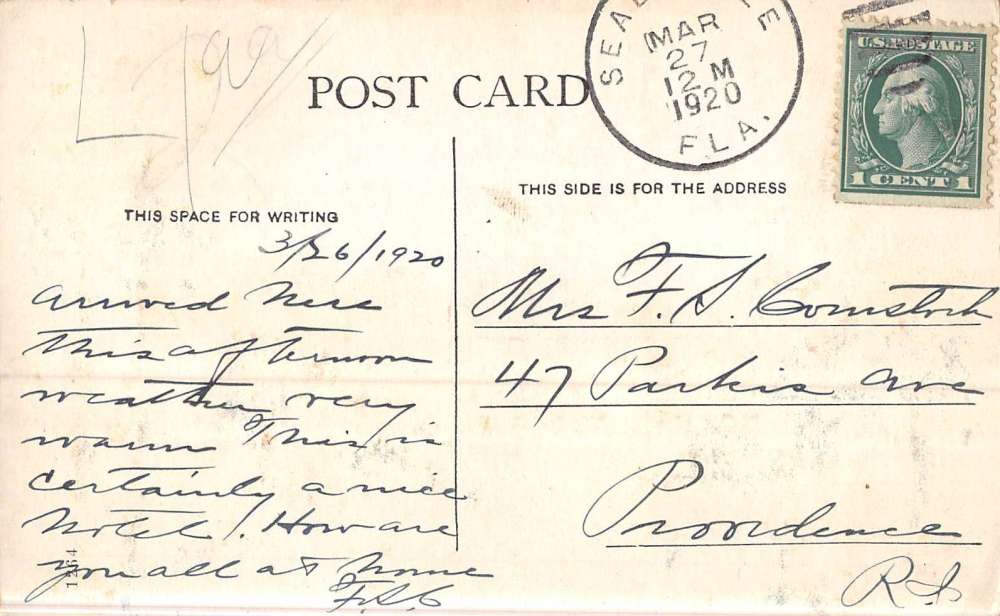 POST CARD
SEA
MAR
27
12 M
1920
FLA.
U.S. POSTAGE
1 CENT 1
THIS SPACE FOR WRITING
THIS SIDE IS FOR THE ADDRESS
3/26/1920
arrived here
this afternoon
weather very
warm This is
certainly a nice
hotel. How are
you all at home
F.S.C
Mrs F. S. Comstock
47 Parkis Ave
Providence
R.I